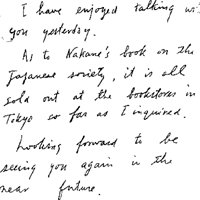 I have enjoyed talking wi
you yesterday.
As to Nakane's book on the
Japanese society, it is all
sold out at the bookstores in
Tokyo so far as I inquired.
Looking forward to be
seeing you again in the
near future.